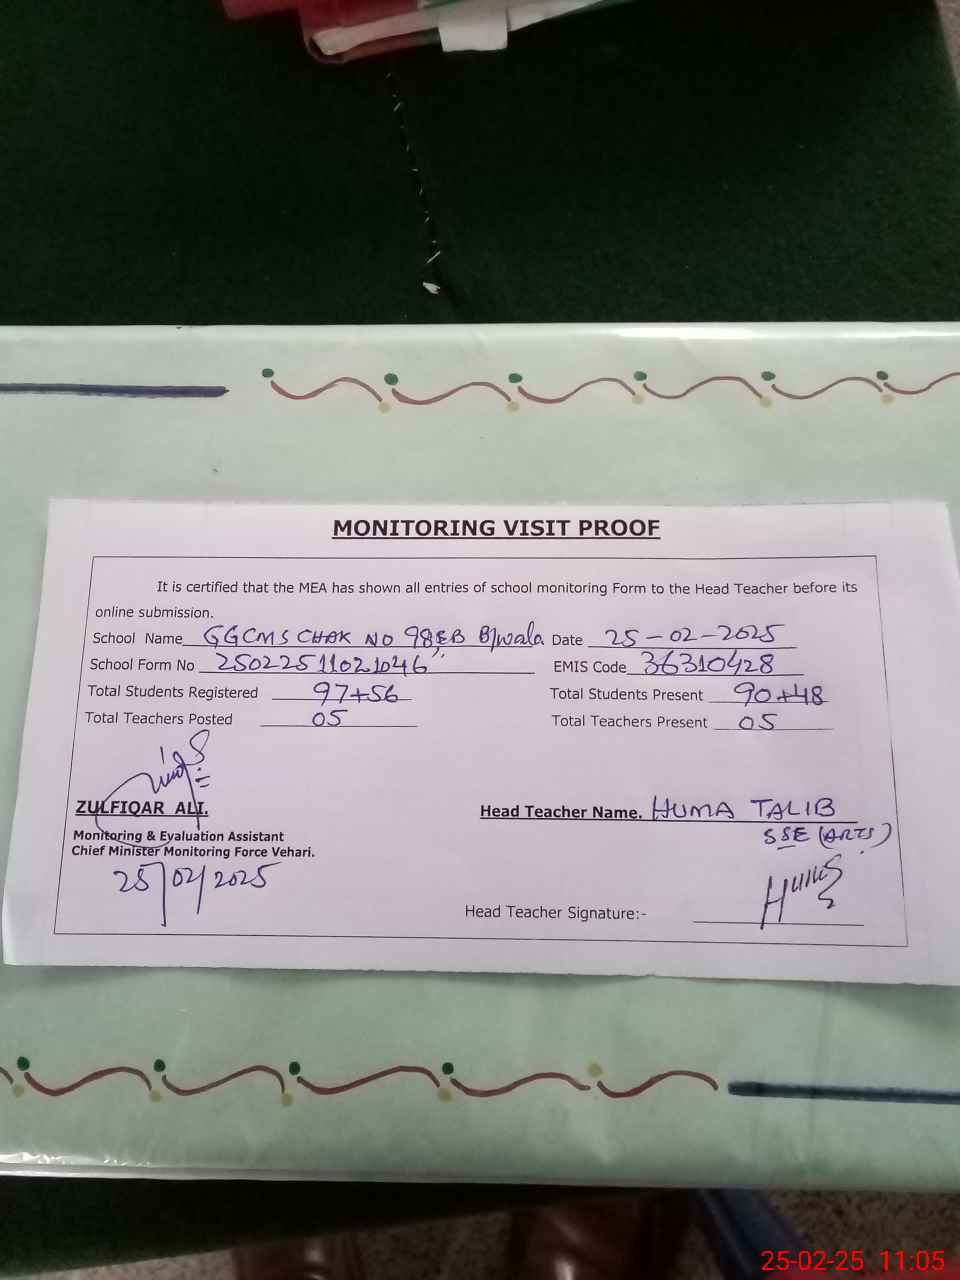 MONITORING VISIT PROOF
It is certified that the MEA has shown all entries of school monitoring Form to the Head Teacher before its
online submission.
School Name GGCMS CHAK NO 98EB B/wala Date 25-02-2025
School Form No 25022511021046 EMIS Code 36310428
Total Students Registered 97+56 Total Students Present 90+48
Total Teachers Posted 05 Total Teachers Present 05
ZULFIQAR ALI. Head Teacher Name. HUMA TALIB
SSE (ARTS)
Monitoring & Evaluation Assistant
Chief Minister Monitoring Force Vehari.
25/02/2025
Head Teacher Signature:- Huma
25-02-25 11:05